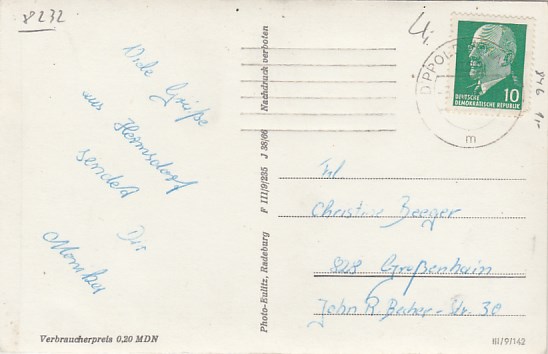 8232
Viele Grüße
aus Hermsdorf
sendet Dir
Monika
Verbraucherpreis 0,20 MDN
Photo-Eulitz, Radeburg F III/9/235 J 38/66 Nachdruck verboten
DIPPOL
m
DEUTSCHE
DEMOKRATISCHE REPUBLIK
10
Frl
Christine Beeger
828 Großenhain
John R. Becher-Str. 30
III/9/142